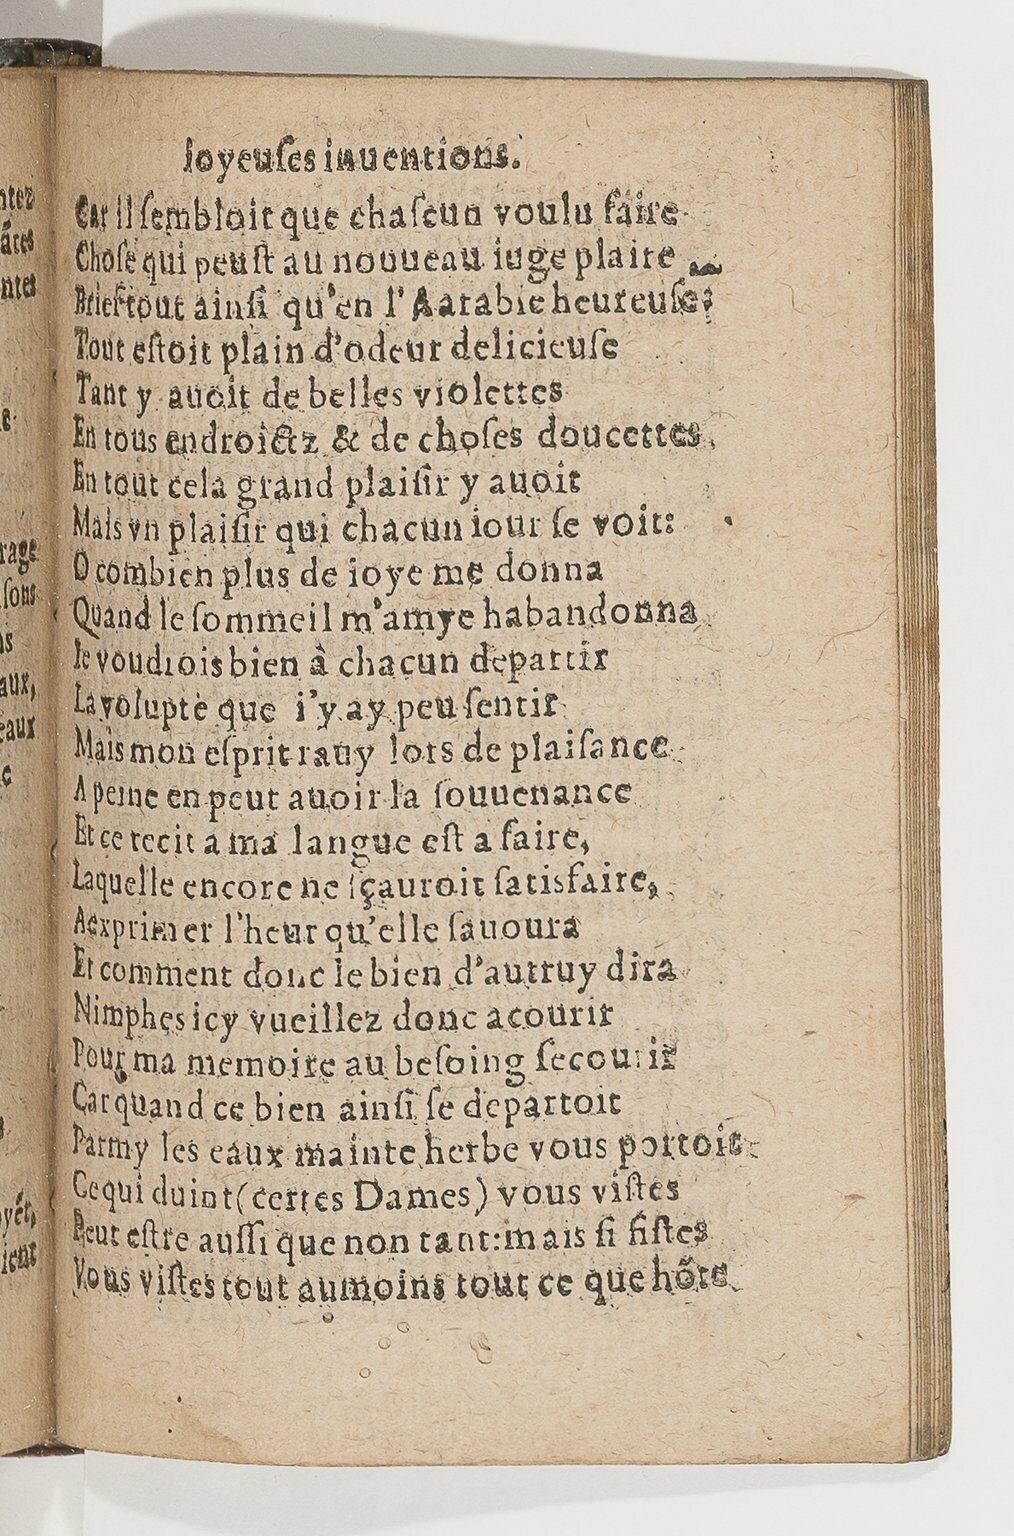 Ioyeuſes inuentions.
Car il ſembloit que chaſcun voulu faire
Choſe qui peuſt au nouueau iuge plaire
Brief tout ainſi qu'en l'Aarabie heureuſe:
Tout eſtoit plain d'odeur delicieuſe
Tant y auoit de belles violettes
En tous endroictz & de choſes doucettes,
En tout cela grand plaiſir y auoit
Mais vn plaiſir qui chacun iour ſe voit:
O combien plus de ioye me donna
Quand le ſommeil m'amye habandonna
Ie voudrois bien à chacun departir
La volupte que i'y ay peu ſentir
Mais mon eſprit rauy lors de plaiſance
A peine en peut auoir la ſouuenance
Et ce recit a ma langue eſt a faire,
Laquelle encore ne ſçauroit ſatisfaire,
A exprimer l'heur qu'elle ſauoura
Et comment donc le bien d'autruy dira
Nimphes icy vueillez donc acourir
Pour ma memoire au beſoing ſecourir
Car quand ce bien ainſi ſe departoit
Parmy les eaux mainte herbe vous portoit
Ce qui duint (certes Dames) vous viſtes
Peut eſtre auſſi que non tant: mais ſi fiſtes
Vous viſtes tout aumoins tout ce que hõte